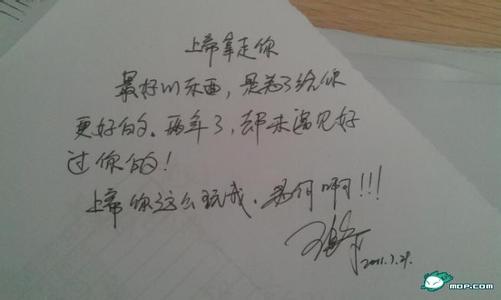 上帝拿走你
最好的东西，是为了给你
更好的。两年了，却未遇见好
过你的！
上帝你这么玩我，为何啊!!!
2011.7.29.
MOP.COM